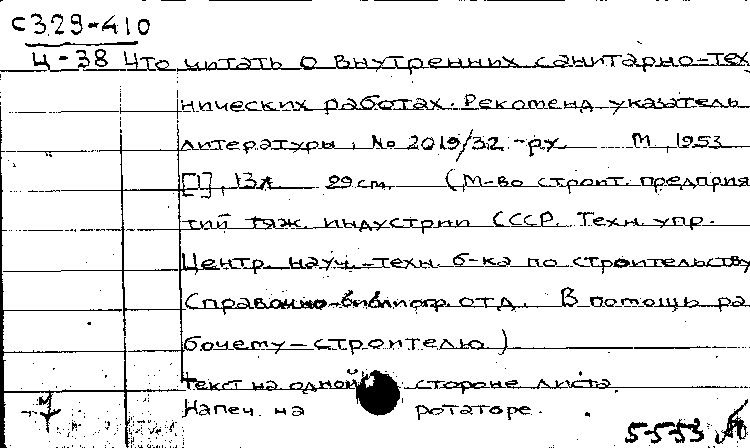 С329-410
Ц-38 Что читать о внутренних санитарно-тех
нических работах. Рекоменд указатель
литературы, No 2019/32-ру М, 1953
[], 13л. 29см. (М-во строит. предприя
тий тяж. индустрии СССР. Техн. упр.
Центр. науч.-техн. б-ка по строительству
Справочно-библиогр. отд. В помощь ра
бочему-строителю)
Текст на одной стороне листа.
Напеч. на ротаторе.
5-553